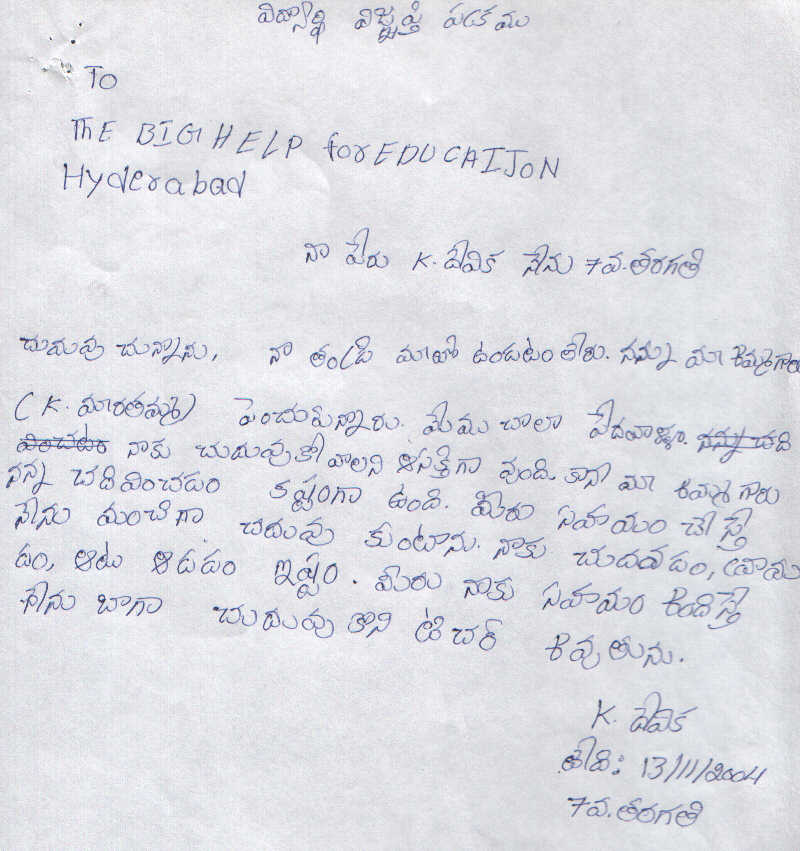 విద్యార్థి విజ్ఞప్తి పత్రము
To
THE BIG HELP for EDUCAIJON
Hyderabad
నా పేరు K. దేవిక నేను 7వ.తరగతి
చదువు చున్నాను, నా తండ్రి మాతో ఉండటం లేరు. నన్ను మా అమ్మగారు
(K. మారతమ్మ) పెంచుచున్నారు. మేము చాలా పేదవాళ్ళం. నన్ను చది
వించటం నాకు చదువుకోవాలని ఆసక్తిగా వుంది. కాని మా అమ్మ గారు
నన్ను చదివించడం కష్టంగా ఉంది. మీరు సహాయం చేస్తే
నేను మంచిగా చదువు కుంటాను. నాకు చదవడం, వ్రాయ
డం, ఆట ఆడడం ఇష్టం. మీరు నాకు సహాయం అందిస్తే
నేను బాగా చదువు కొని టీచర్ అవుతును.
K. దేవిక
తేది: 13/11/2004
7వ.తరగతి